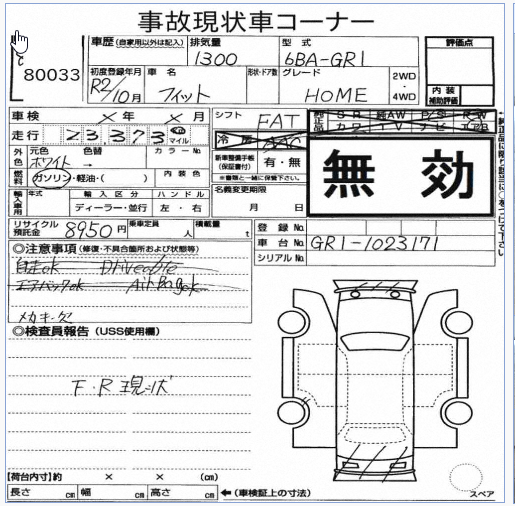 事故現状車コーナー
80033
車歴 (自家用以外は記入) 排気量 型式 評価点
1300 6BA-GR1
初度登録年月 車名 形状・ドア数 グレード 2WD
R2/10月 フィット HOME 4WD
内装
補助評価
車検 × 年 × 月 シフト FAT
走行 23,373 km マイル 冷房 AAC
外色 元色 色替 カラーNo. 新車整備手帳(保証書付) 有・無
ホワイト → ※書類と一緒に保管下さい。
燃料 ガソリン・軽油・( ) 内装色 名義変更期限
輸入車用 年式 輸入区分 ハンドル 月 日
ディーラー・並行 左・右
無効
リサイクル預託金 8950円 乗車定員 人 積載量 t
登録No.
車台No. GR1-1023171
シリアルNo.
◎注意事項 (修復・不具合箇所および状態等)
自走ok Driveable
エアバックok AirBag ok
メカキ欠
◎検査員報告 (USS使用欄)
F・R現状
【荷台内寸】約 × × (cm)
長さ cm 幅 cm 高さ cm ←(車検証上の寸法)
スペア